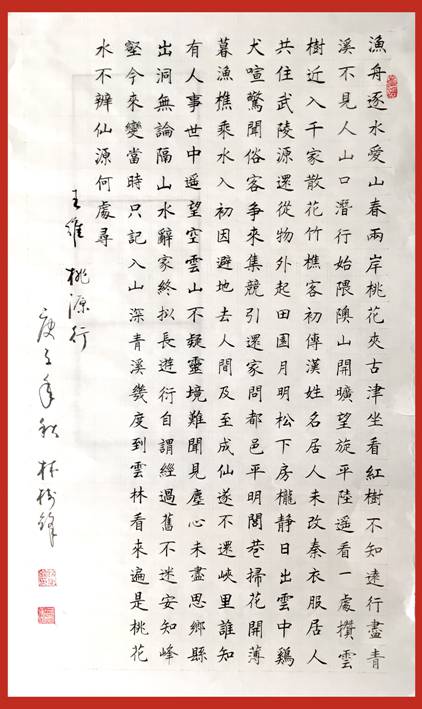 漁舟逐水愛山春兩岸桃花夾古津坐看紅樹不知遠行盡青
溪不見人山口潛行始隈隩山開曠望旋平陸遙看一處攢雲
樹近入千家散花竹樵客初傳漢姓名居人未改秦衣服居人
共住武陵源還從物外起田園月明松下房櫳靜日出雲中鷄
犬喧驚聞俗客爭來集競引還家問都邑平明閭巷掃花開薄
暮漁樵乘水入初因避地去人間及至成仙遂不還峽里誰知
有人事世中遙望空雲山不疑靈境難聞見塵心未盡思鄉縣
出洞無論隔山水辭家終拟長遊衍自謂經過舊不迷安知峰
壑今來變當時只記入山深青溪幾度到雲林看來遍是桃花
水不辨仙源何處尋
王維 桃源行
庚子年秋 林樹鋒